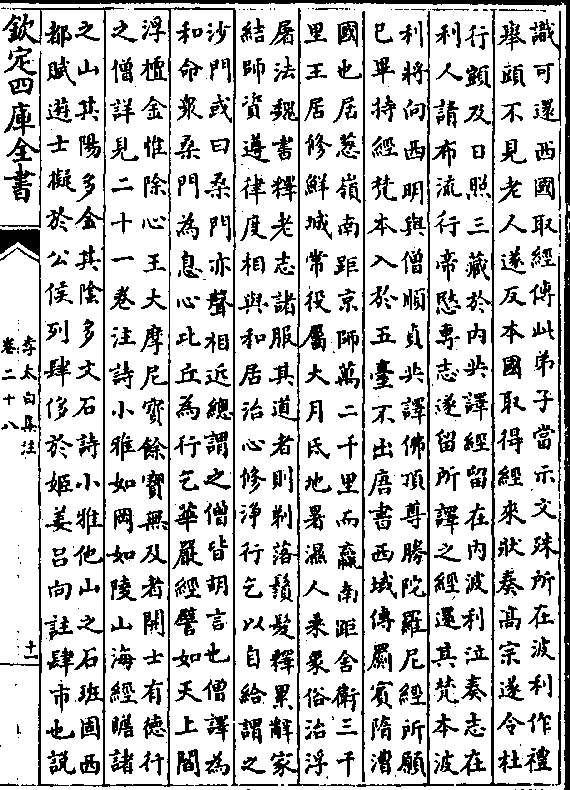 識可還西國取經傳此弟子當示文殊所在波利作禮
舉頭不見老人遂反本國取得經來狀奏髙宗遂令杜
行顗及日照三藏於内共譯經留在内波利泣奏志在
利人請布流行帝愍專志遂留所譯之經還其梵本波
利將向西明與僧順貞共譯佛頂尊勝陀羅尼經所願
已畢持經梵本入於五臺不出唐書西域傳罽賓隋漕
國也居葱嶺南距京師萬二千里而贏南距舍衛三千
里王居修鮮城常役屬大月氏地暑濕人乘象俗治浮
屠法魏書釋老志諸服其道者則剃落鬚髮釋累辭家
結師資遵律度相與和居治心修浄行乞以自給謂之
沙門或曰桑門亦聲相近總謂之僧皆胡言也僧譯為
和命衆桑門為息心比丘為行乞華嚴經譬如天上閻
浮檀金惟除心王大摩尼寳餘寳無及者開士有德行
之僧詳見二十一卷注詩小雅如岡如陵山海經瞻諸
之山其陽多金其陰多文石詩小雅他山之石班固西
都賦遊士擬於公侯列肆侈於姬姜吕向註肆市也説
欽定四庫全書
李太白集注
卷二十八
十一